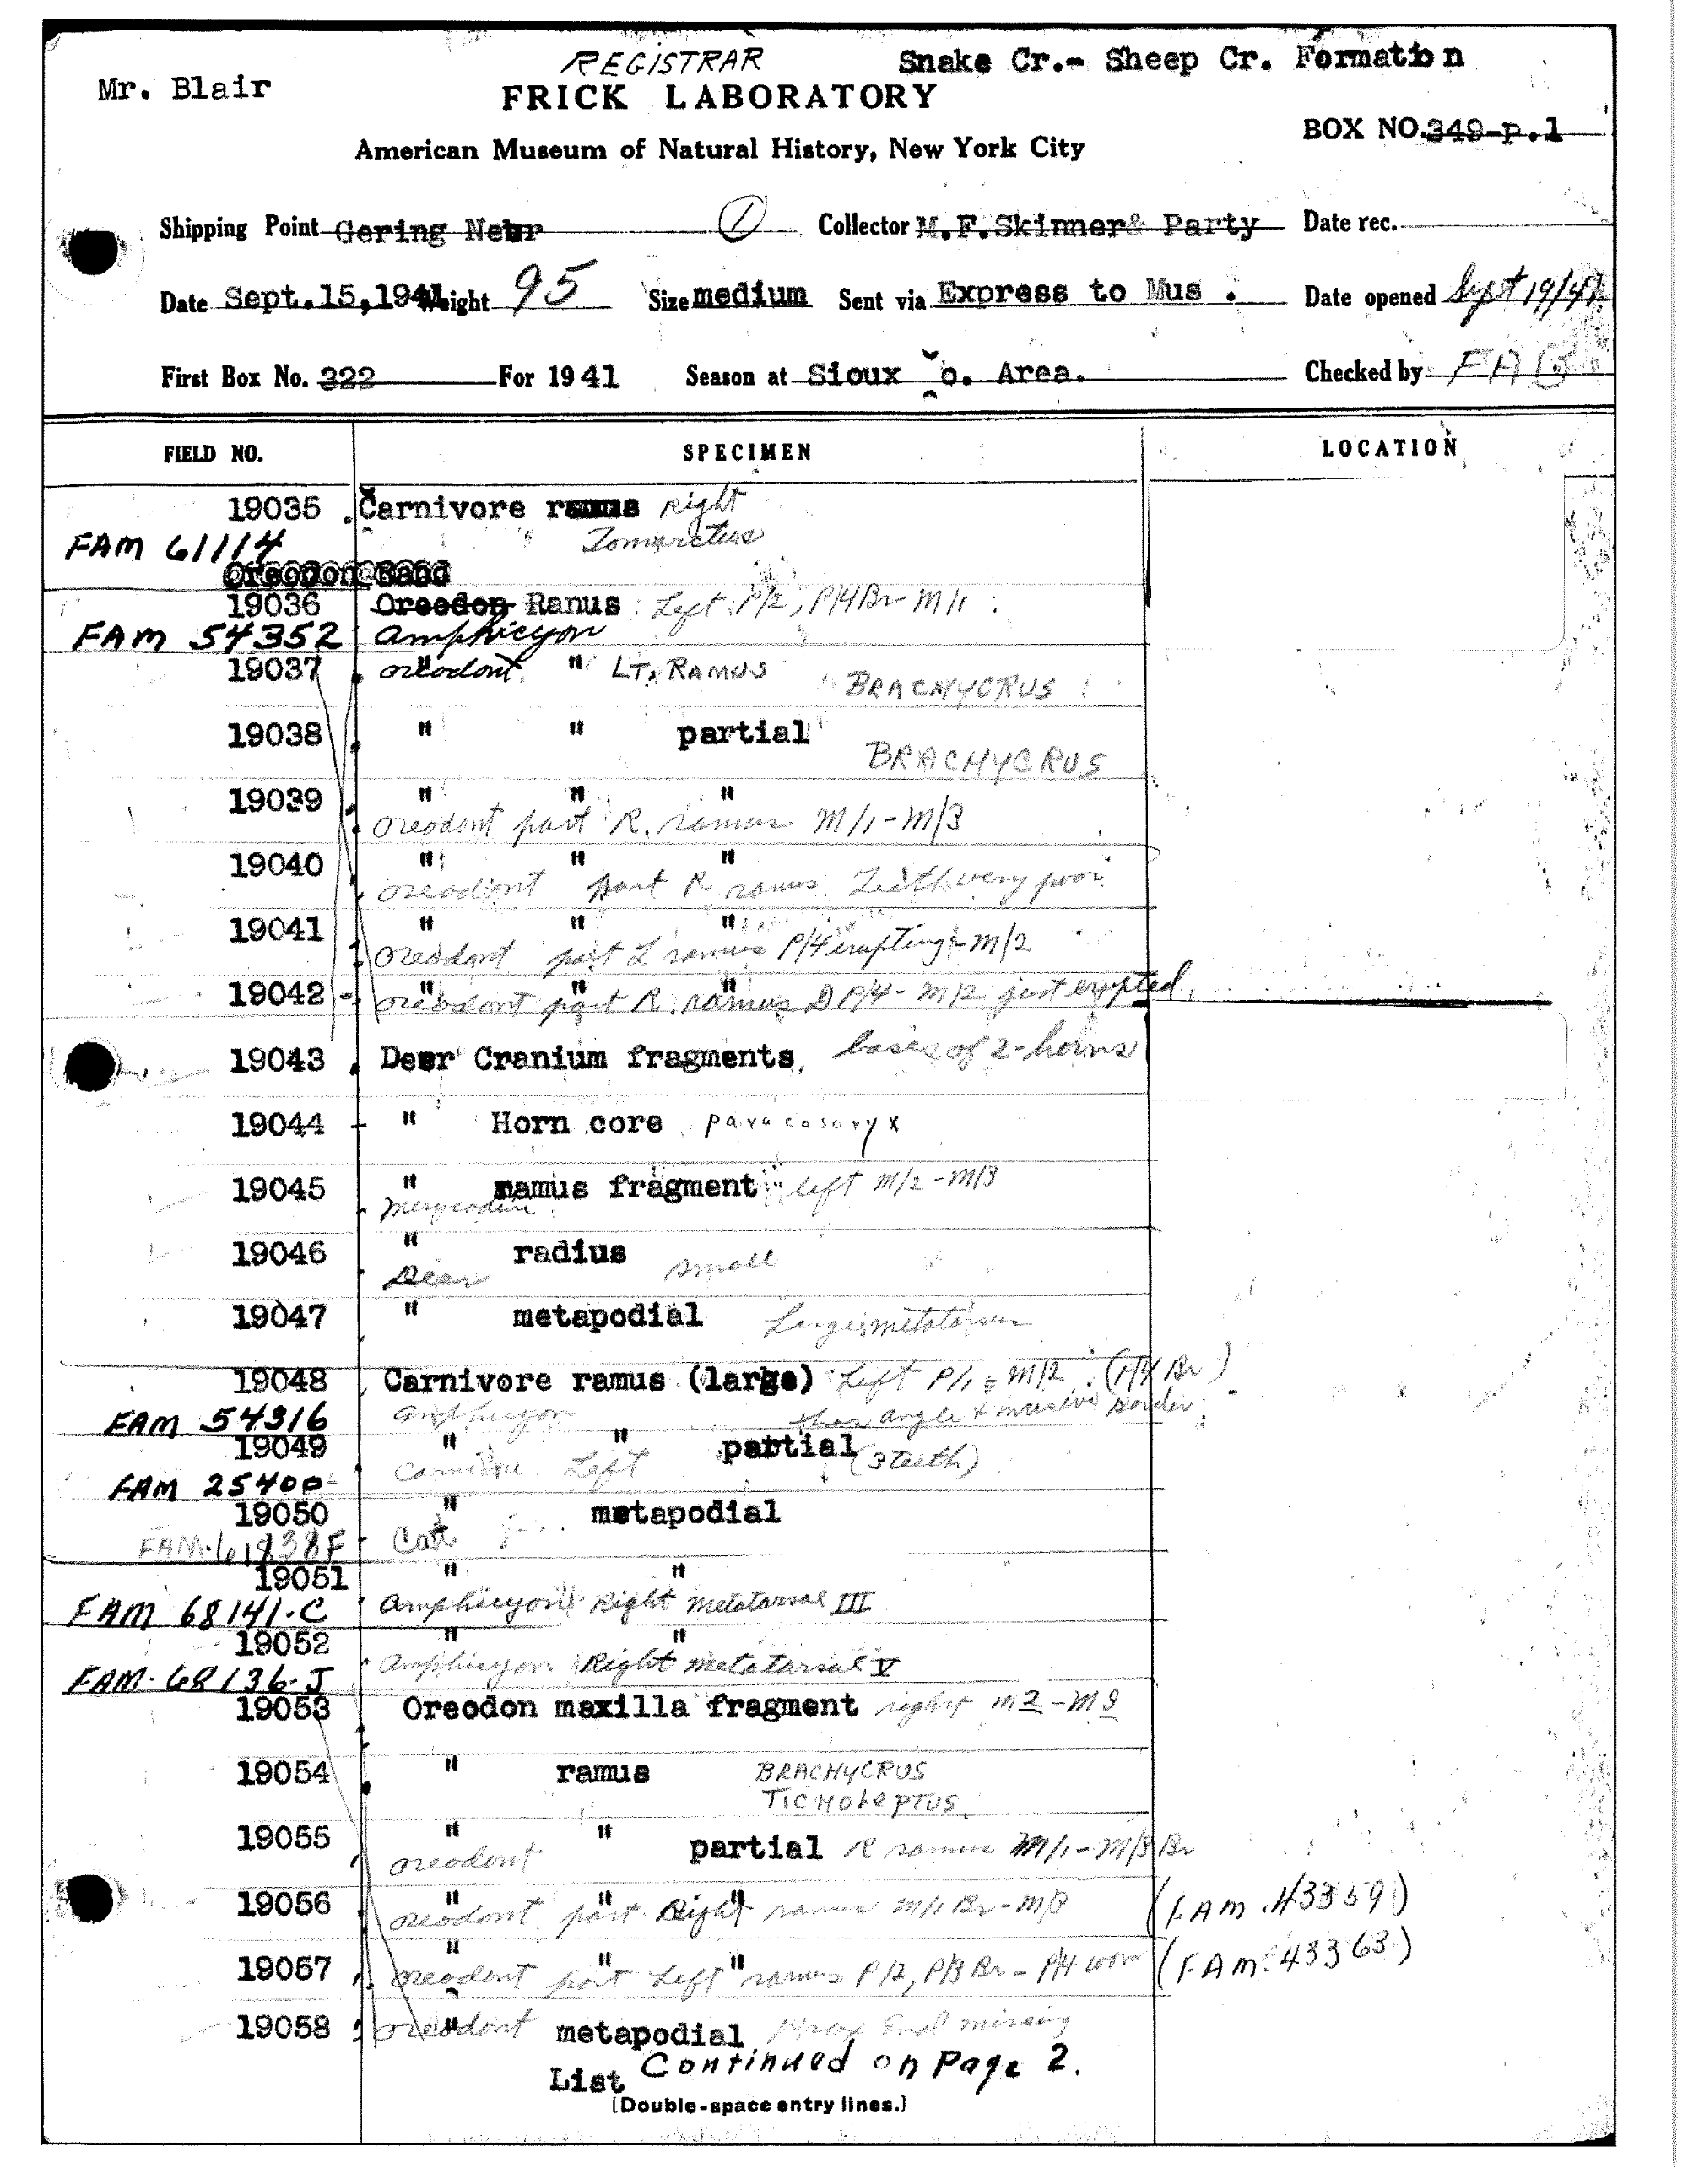 REGISTRAR Snake Cr.- Sheep Cr. Formation
Mr. Blair
FRICK LABORATORY
BOX NO. 349-p.1
American Museum of Natural History, New York City
Shipping Point Gering Nebr 1 Collector M.F.Skinner& Party Date rec.
Date Sept.15,1941 Weight 95 Size medium Sent via Express to Mus . Date opened Sept 19/41
First Box No. 322 For 1941 Season at Sioux Co. Area. Checked by
FIELD NO. SPECIMEN LOCATION
19035 Carnivore ramus Right
FAM 61114 Tomarctus
19036 Oreodon Ramus Left P/2, P/4 Br - M/1
FAM 54352 Amphicyon
19037 oreodont " LT. RAMUS BRACHYCRUS
19038 " " partial
BRACHYCRUS
19039 " " "
oreodont part R. ramus M/1-M/3
19040 " " "
oreodont part R ramus Teeth very poor
19041 " " "
oreodont part L ramus P/4 erupting - M/2
19042 - " " "
oreodont part R. ramus D P/4 - M/2 just erupted
19043 Deer Cranium fragments, bases of 2-horns
19044 " Horn core paracosoryx
19045 " ramus fragment left M/2-M/3
Merycodine
19046 " radius
Deer small
19047 " metapodial Large metatarsus
19048 Carnivore ramus (large) Left P/1 - M/2 (P/4 Br)
FAM 54316 Amphicyon angle & border
19049 " " partial (3 teeth)
FAM 25400 Carnivore Left
19050 " metapodial
FAM. 61938F Cat
19051 " "
FAM 68141-C Amphicyon Right metatarsal III
19052 " "
FAM. 68136-J Amphicyon Right metatarsal V
19053 Oreodon maxilla fragment right M2-M3
19054 " ramus BRACHYCRUS
TICHOLEPTUS
19055 " " partial R ramus M/1-M/3 Br
oreodont
19056 " " "
oreodont part Right ramus M/1 Br - M/3 (FAM. 43359)
19057 " " "
oreodont part Left ramus P/2, P/3 Br - P/4 worn (FAM. 43363)
19058 " oreodont metapodial Prox End missing
List Continued on Page 2.
(Double-space entry lines.)